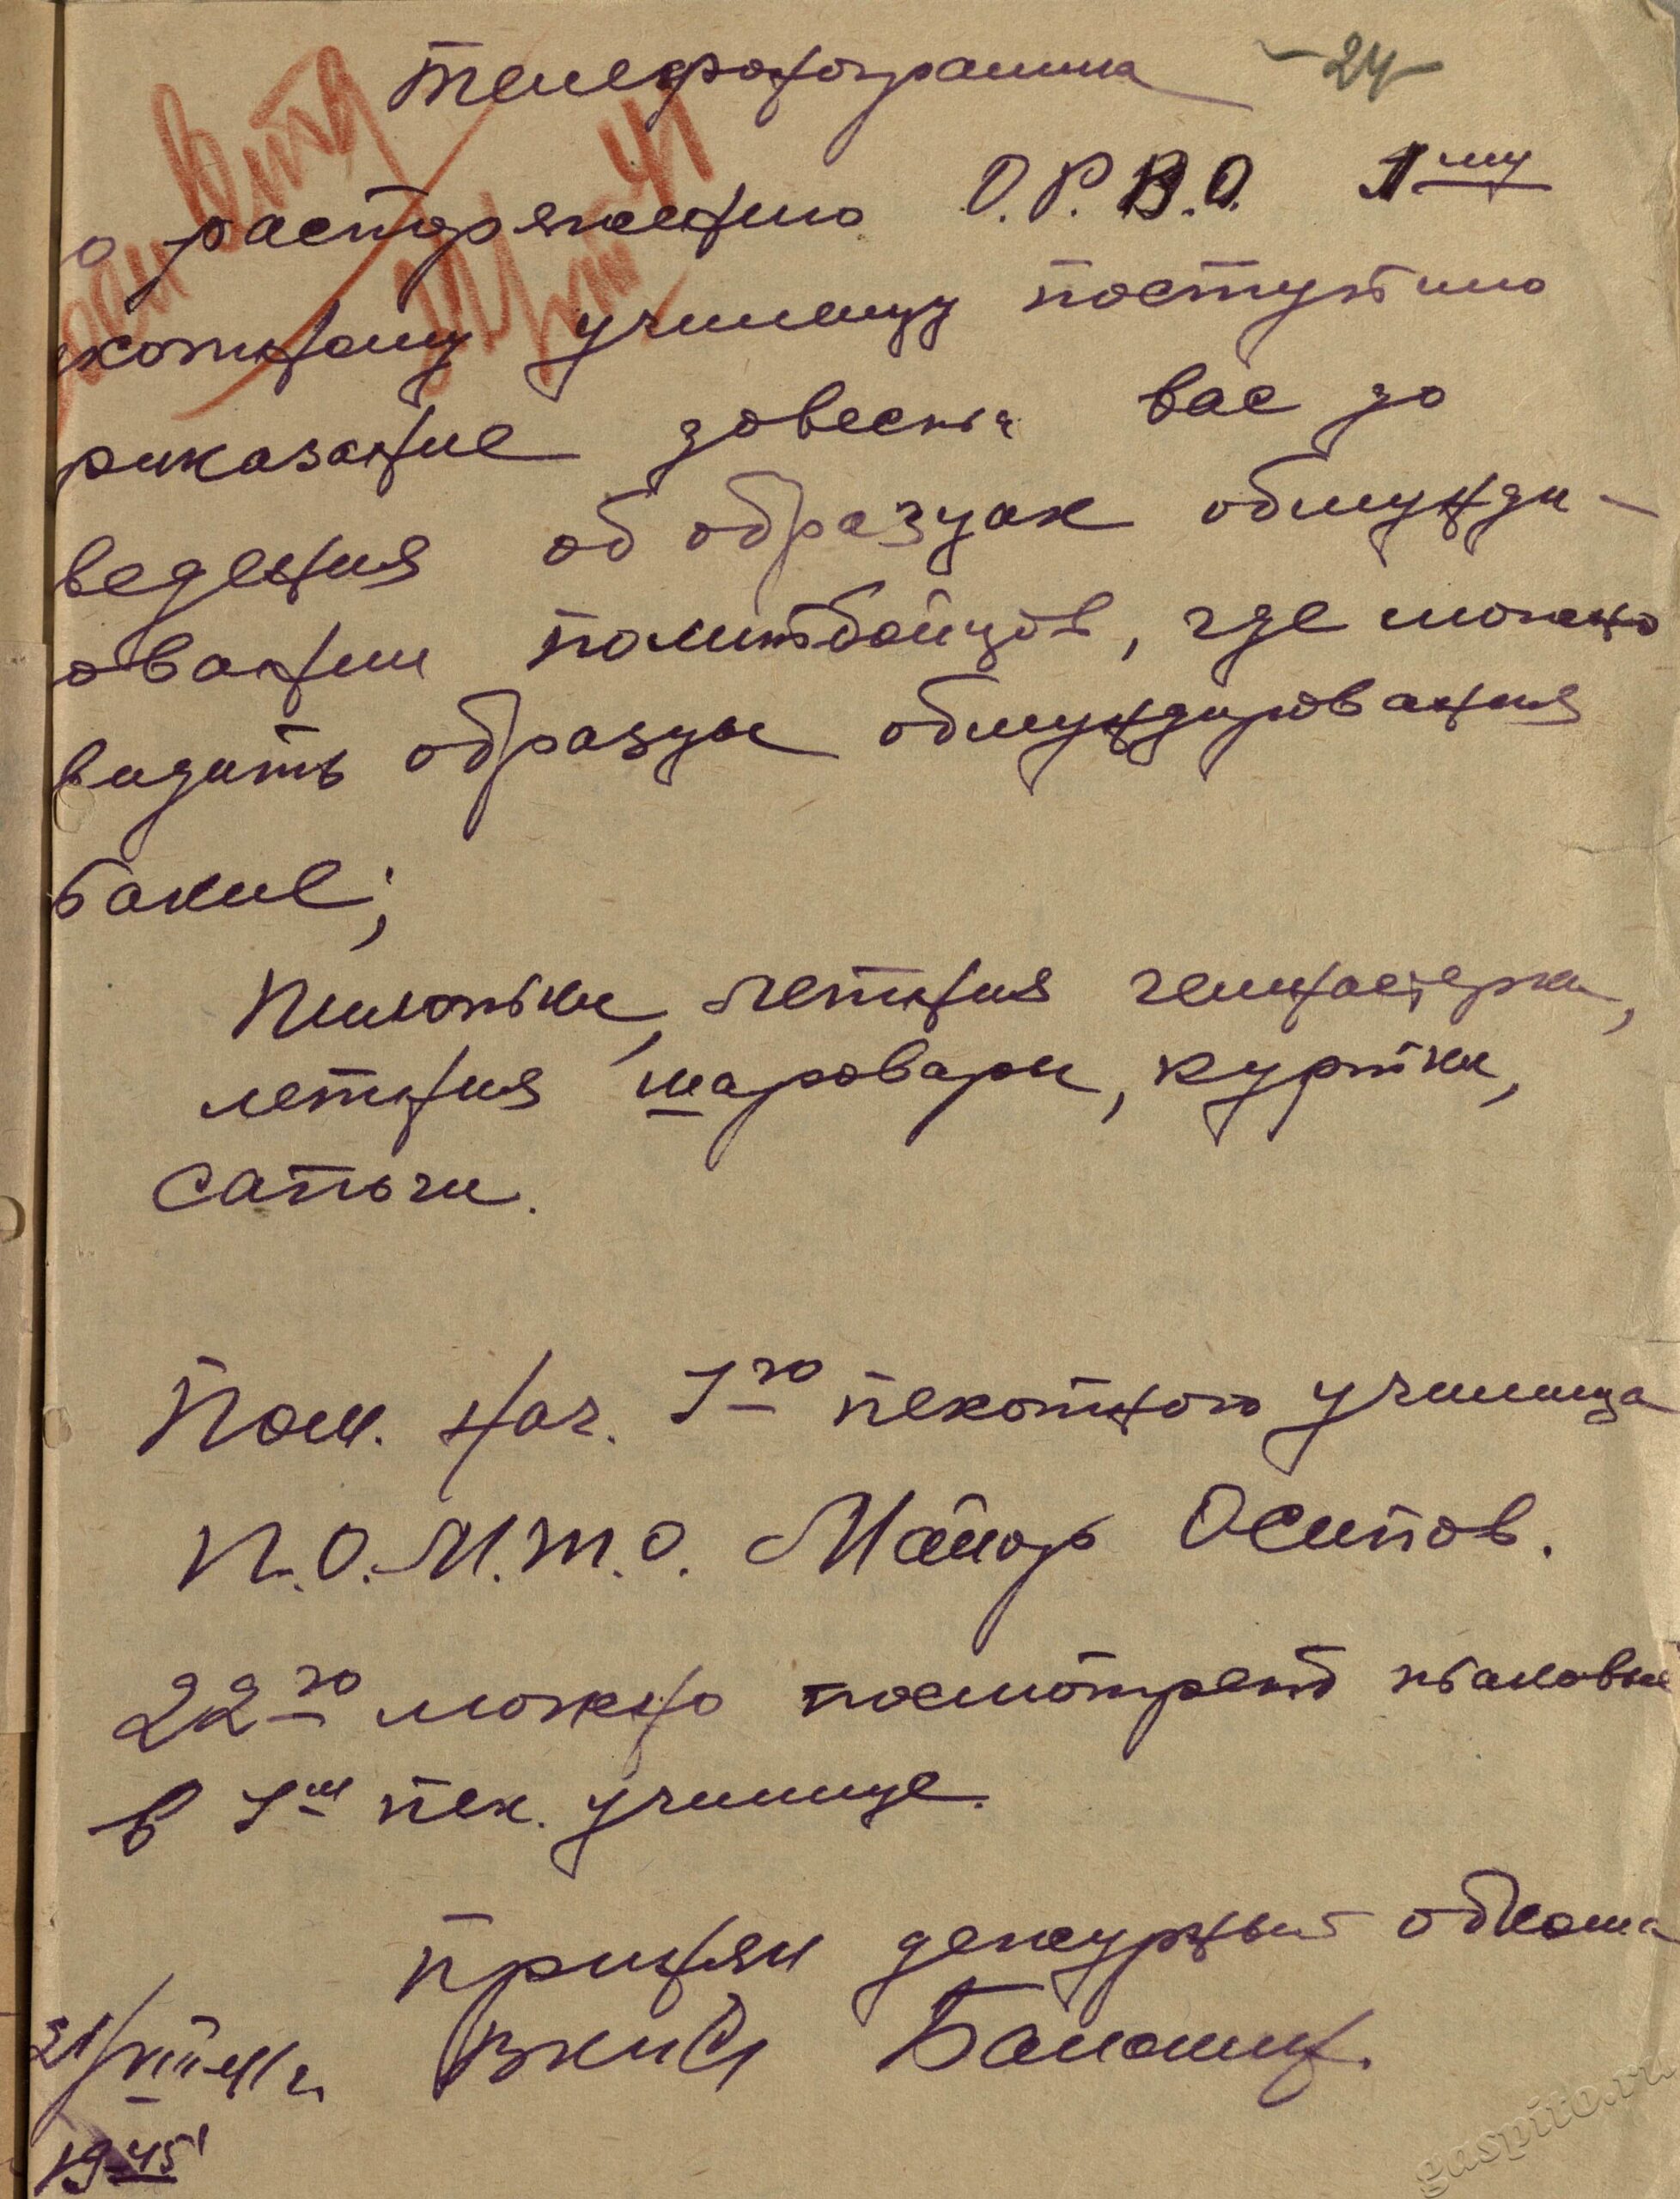 Телефонограмма
-24-
о распоряжению О.Р.В.О. 1му
хотному училищу поступило
риказание довести вас до
ведения об образцах обмунди-
ования политбойцов, где можно
видить образцы обмундирования
такие;
Пилотки, летния гемнастерки,
летния шаровары, куртки,
сапоги.
Пом. нач. 1го пехотного училища
п.о.м.т.о. Майор Осипов.
22го можно посмотреть
в 1м пех. училище.
принял дежурный обкома
ВКП(б) Балашин.
21/VIII-41г.
19-45'
gaspito.ru